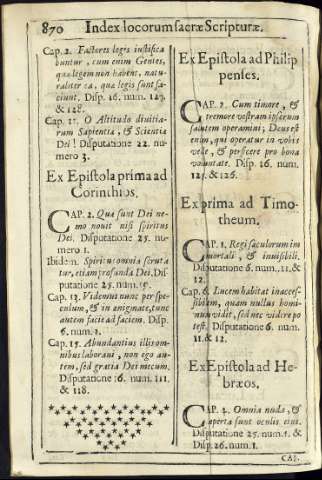 870 Index locorum sacræ Scripturæ.
Cap. 2. Factores legis iustifica
buntur, cum enim Gentes,
quæ legem non habent, natu-
raliter ea, quæ legis sunt fa-
ciunt. Disp. 16. num. 127.
& 128.
Cap. 11. O Altitudo divitia-
rum Sapientiæ, & Scientiæ
Dei! Disputatione 22. nu-
mero 3.
Ex Epistola prima ad
Corinthios.
CAP. 2. Quæ sunt Dei ne-
mo novit nisi spiritus
Dei. Disputatione 25. nu-
mero 1.
Ibidem. Spiritus omnia scruta
tur, etiam profunda Dei. Dis-
putatione 25. num. 15.
Cap. 13. Videmus nunc per spe-
culum, & in ænigmate, tunc
autem facie ad faciem. Disp.
6. num. 1.
Cap. 15. Abundantius illis om-
nibus laboravi, non ego au-
tem, sed gratia Dei mecum.
Disputatione 16. num. 111.
& 118.
Ex Epistola ad Philip
penses.
CAP. 2. Cum timore, &
tremore vestram ipsorum
salutem operamini; Deus est
enim, qui operatur in vobis
velle, & perficere pro bona
voluntate. Disp. 16. num.
125. & 126.
Ex prima ad Timo-
theum.
CAP. 1. Regi sæculorum im
mortali, & invisibili.
Disputatione 6. num. 11. &
12.
Cap. 6. Lucem habitat inacces-
sibilem, quam nullus homi-
num vidit, sed nec videre po
test. Disputatione 6. num.
11. & 12.
Ex Epistola ad He-
bræos.
CAP. 4. Omnia nuda, &
aperta sunt oculis eius.
Disputatione 25. num. 1. &
Disp. 26. num. 1.